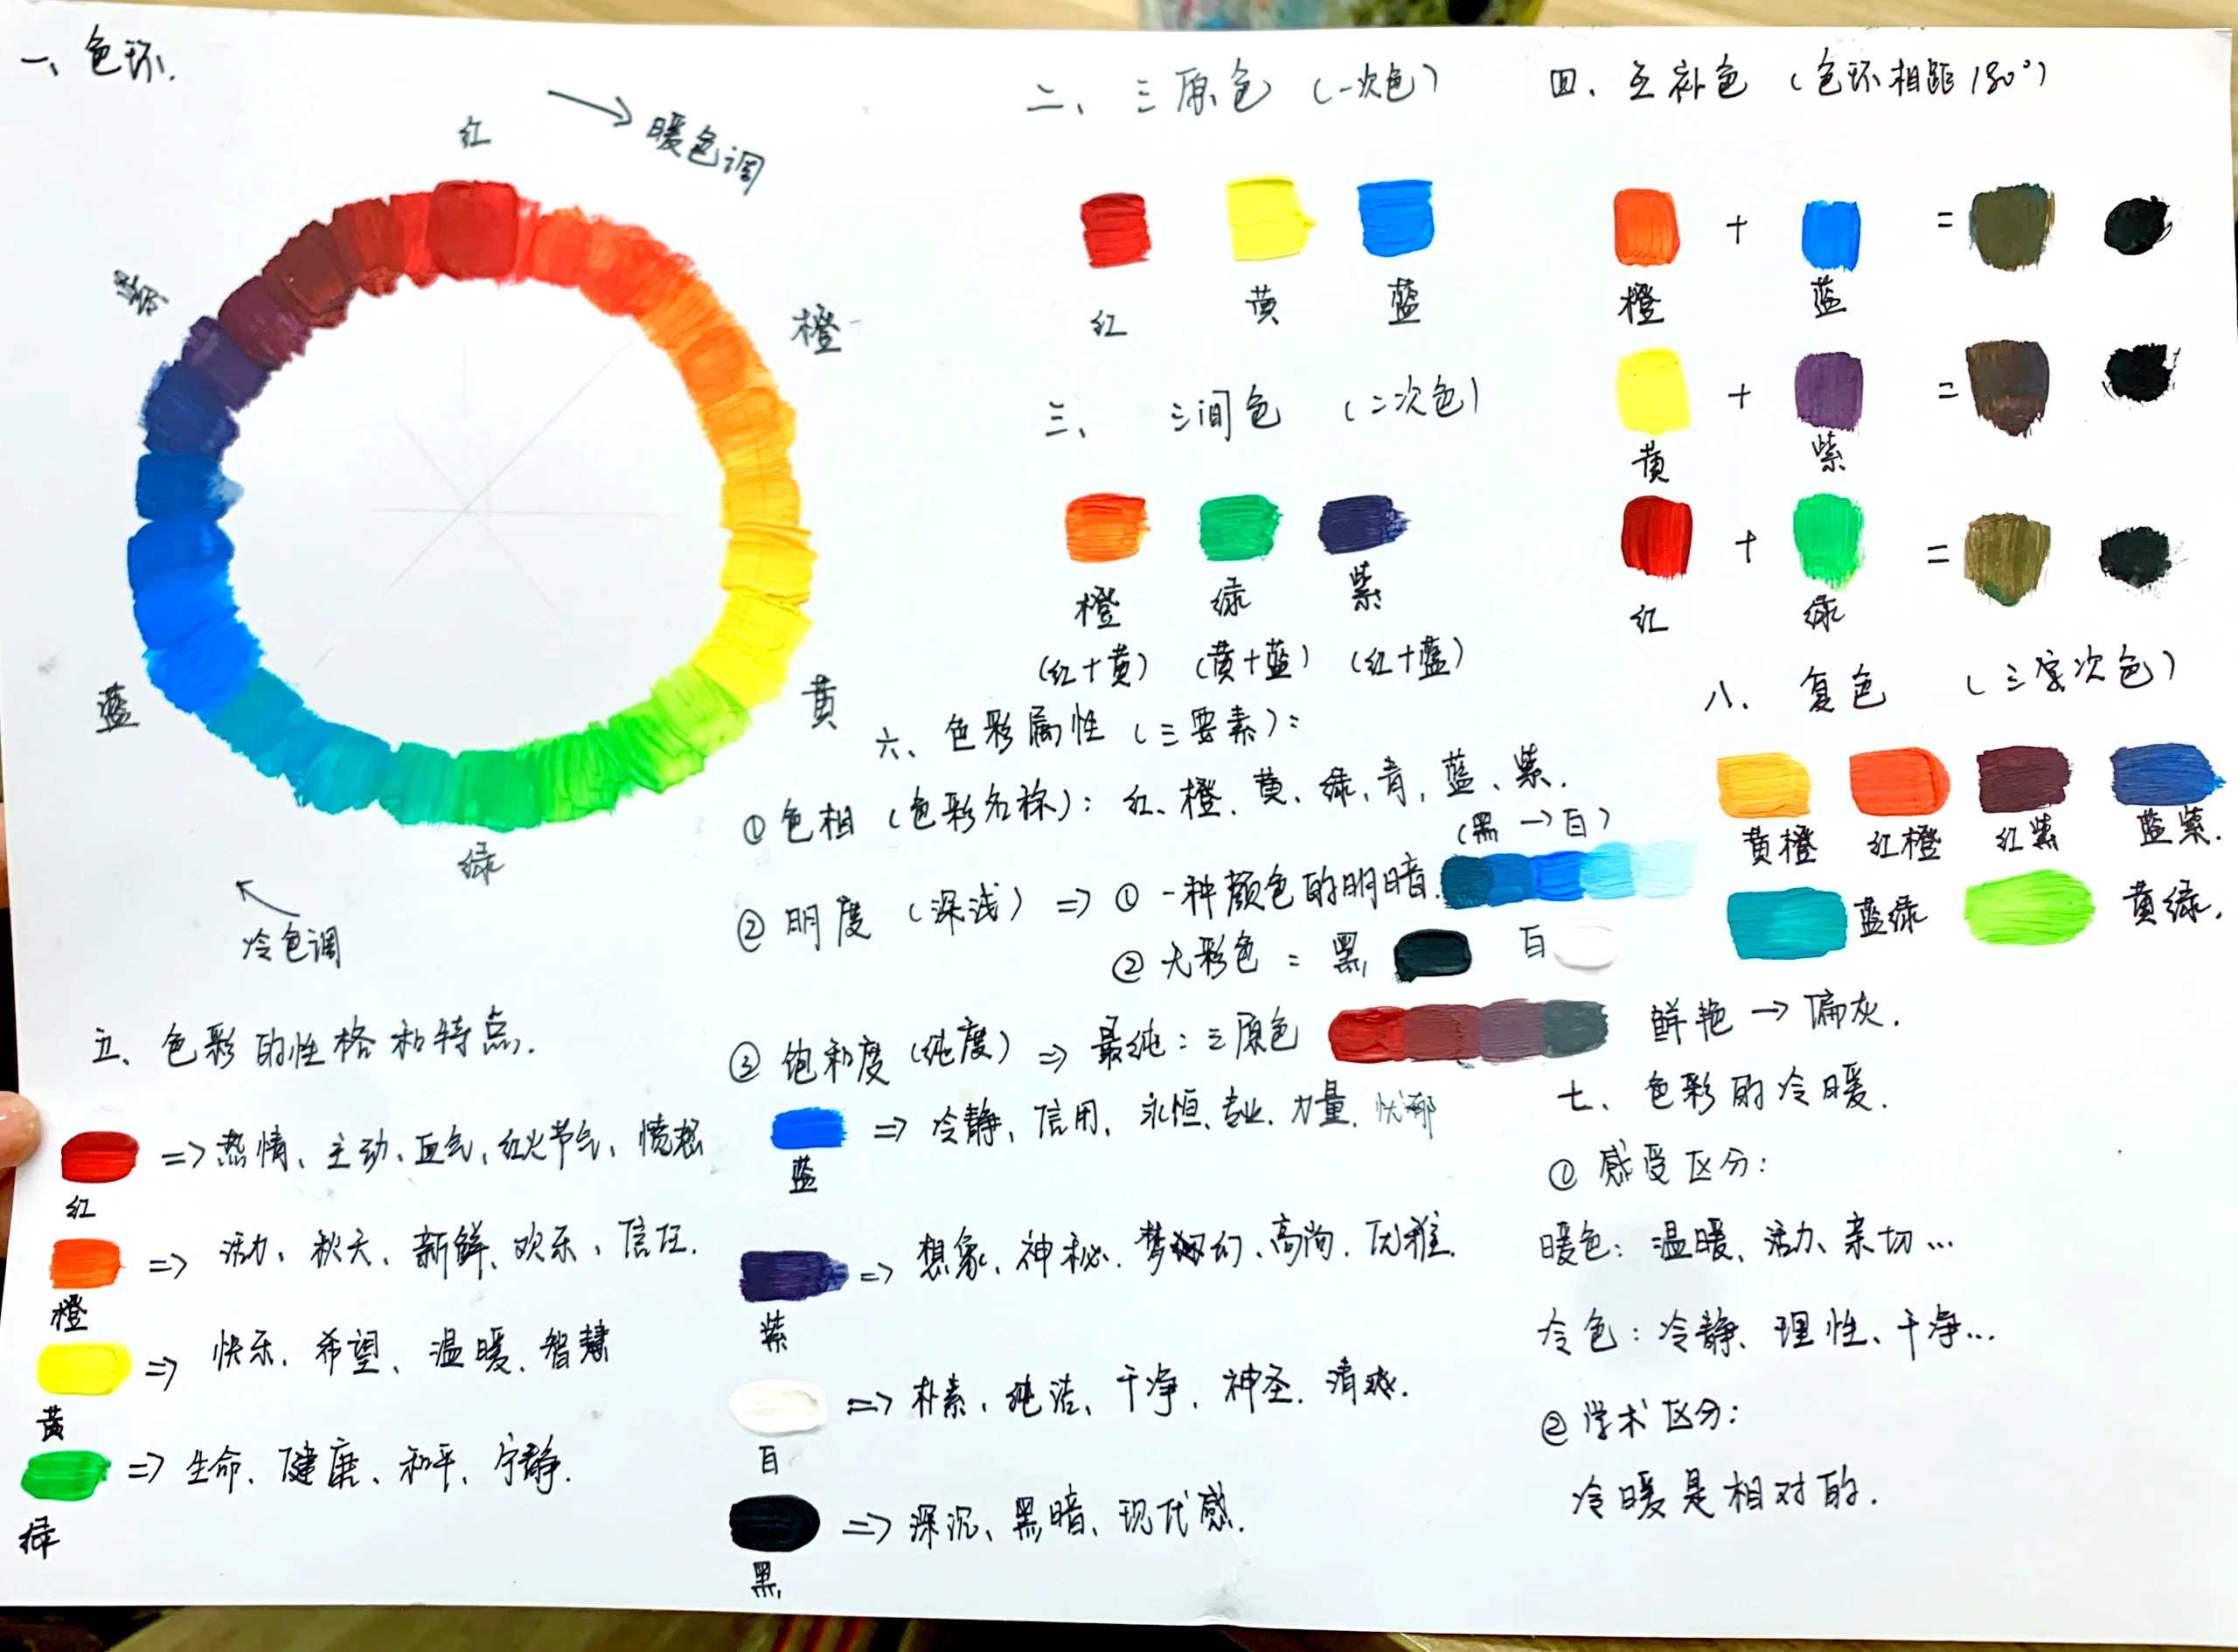 一、色环.
红
→ 暖色调
橙
黄
绿
蓝
紫
← 冷色调
二、三原色 (一次色)
红 黄 蓝
三、三间色 (二次色)
橙 绿 紫
(红+黄) (黄+蓝) (红+蓝)
四、互补色 (色环相距180°)
橙 + 蓝 =
黄 + 紫 =
红 + 绿 =
五、色彩的性格和特点.
红 => 热情、主动、血气、红火节气、愤怒
橙 => 活力、秋天、新鲜、欢乐、信任.
黄 => 快乐、希望、温暖、智慧
绿 => 生命、健康、和平、宁静.
蓝 => 冷静、信用、永恒、专业、力量、忧郁
紫 => 想象、神秘、梦幻、高尚、优雅.
白 => 朴素、纯洁、干净、神圣、清爽.
黑 => 深沉、黑暗、现代感.
六、色彩属性 (三要素):
① 色相 (色彩名称): 红、橙、黄、绿、青、蓝、紫.
(黑→白)
② 明度 (深浅) => ① 一种颜色的明暗.
② 无彩色: 黑 白
③ 饱和度 (纯度) => 最纯: 三原色 鲜艳→偏灰.
七、色彩的冷暖.
① 感受区分:
暖色: 温暖、活力、亲切...
冷色: 冷静、理性、干净...
② 学术区分:
冷暖是相对的.
八、复色 (三次色)
黄橙 红橙 红紫 蓝紫.
蓝绿 黄绿.